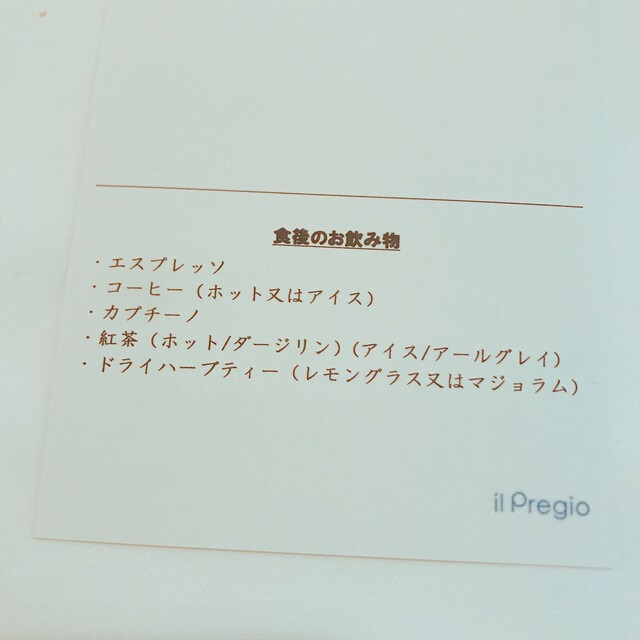 食後のお飲み物
・エスプレッソ
・コーヒー（ホット又はアイス）
・カプチーノ
・紅茶（ホット/ダージリン）（アイス/アールグレイ）
・ドライハーブティー（レモングラス又はマジョラム）
il Pregio